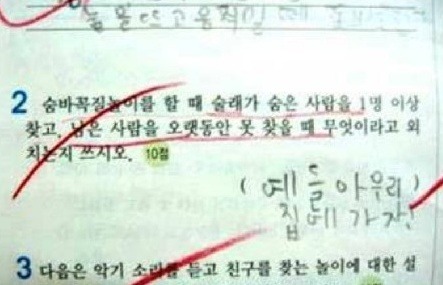 눈을 뜨고 움직일 때
2 숨바꼭질놀이를 할 때 술래가 숨은 사람을 1명 이상
찾고, 남은 사람을 오랫동안 못 찾을 때 무엇이라고 외
치는지 쓰시오. 10점
( 얘들아우리 )
집에가자!
3 다음은 악기 소리를 듣고 친구를 찾는 놀이에 대한 설